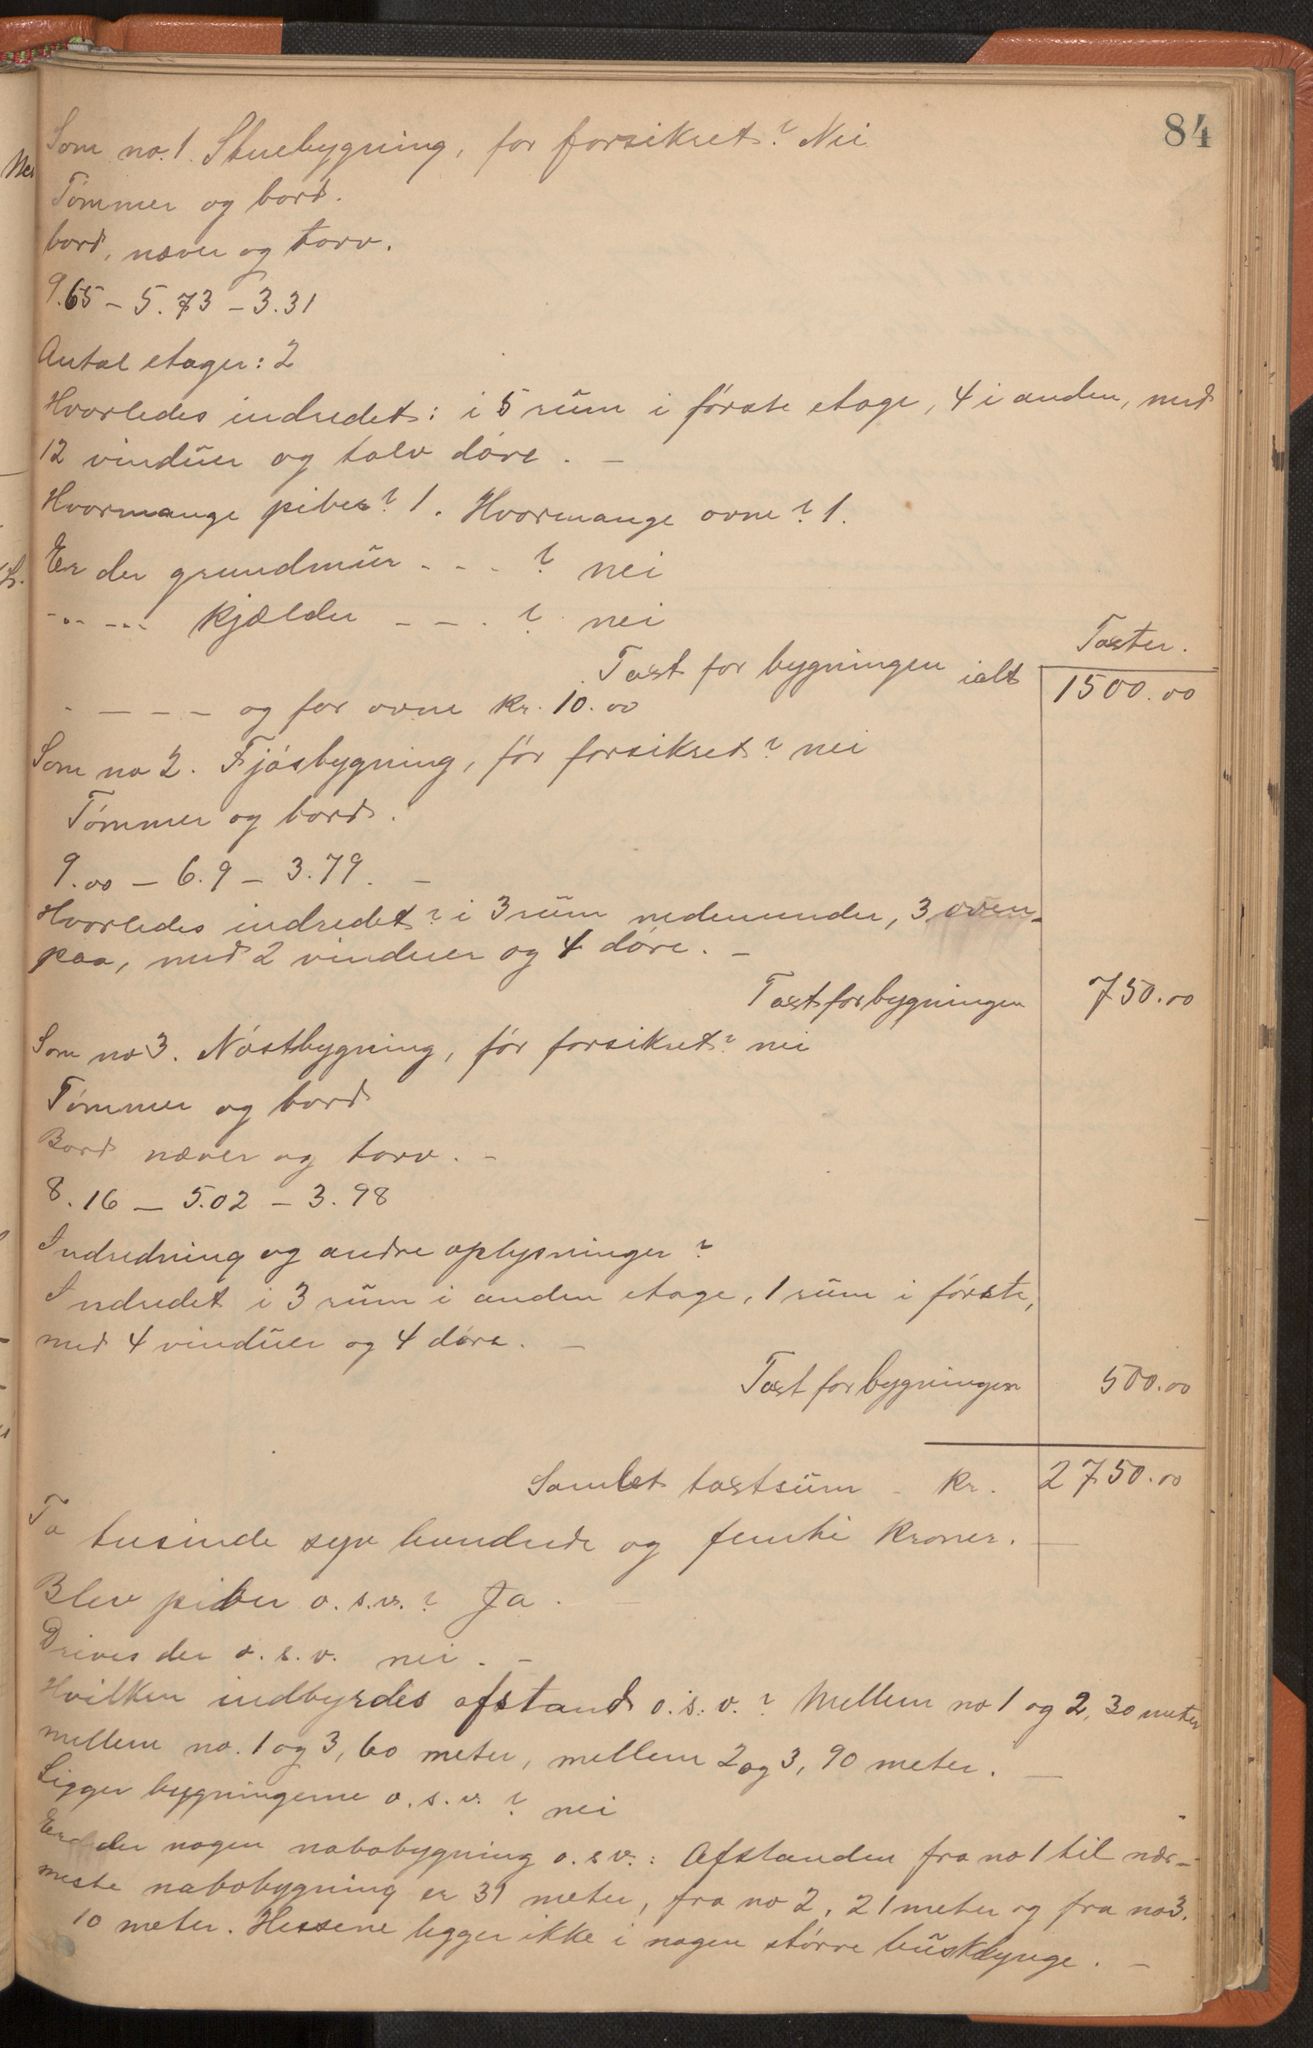 84
Som no. 1. Stuebygning, før forsikret? Nei
Tømmer og bord.
bord, næver og torv.
9.65 – 5.73 – 3.31
Antal etager: 2
Hvorledes indredet: i 5 rüm i første etage, 4 i anden, med
12 vindüer og tolv døre. –
Hvormange piber? 1. Hvormange ovne? 1.
Er der grundmür - - - ? nei
-..- -..- kjælder - - . ? nei
Taxter.
Taxt for bygningen ialt 1500.00
- – – – og for ovne kr. 10.00
Som no 2. Fjøsbygning, før forsikret? nei
Tømmer og bord.
9.00 – 6.9 – 3.79. –
Hvorledes indredet? i 3 rüm nedenunder, 3 oven-
paa, med 2 vinduer og 4 døre. –
Taxt for bygningen 750.00
Som no 3. Nøstbygning, før forsikret? nei
Tømmer og bord
Bord næver og torv. –
8.16 – 5.02 – 3.98
Indredning og andre oplysninger?
Indredet i 3 rüm i anden etage, 1 rüm i første,
med 4 vindüer og 4 døre. –
Taxt for bygningen 500.00
Samlet taxtsüm – kr. 2750.00
To tusinde syv hundrede og femti kroner. –
Blev piber o.s.v.? Ja. –
Drives der o.s.v. nei. –
Hvilken indbyrdes afstand o.s.v.? Mellem no 1 og 2, 30 meter
mellem no. 1 og 3, 60 meter, mellem 2 og 3, 90 meter. –
Ligger bygningerne o.s.v.? nei
Er der nogen nabobygning o.s.v.: Afstanden fra no 1 til nær-
meste nabobygning er 31 meter, fra no 2, 21 meter og fra no 3.
10 meter. Hussene ligger ikke i nogen større hüsklynge. –